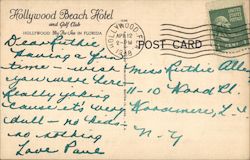 Hollywood Beach Hotel
and Golf Club
HOLLYWOOD By-The-Sea IN FLORIDA
HOLLYWOOD, FLA.
APR 12
POST CARD
Dear Ruthie
Having a fine
time - wish
you were here
Really joking
cause it's very
dull - no kids
no nothing
Love Paul
Miss Ruthie Allen
11-10 Wood Pl.
Woodmere, L.I.
N-Y